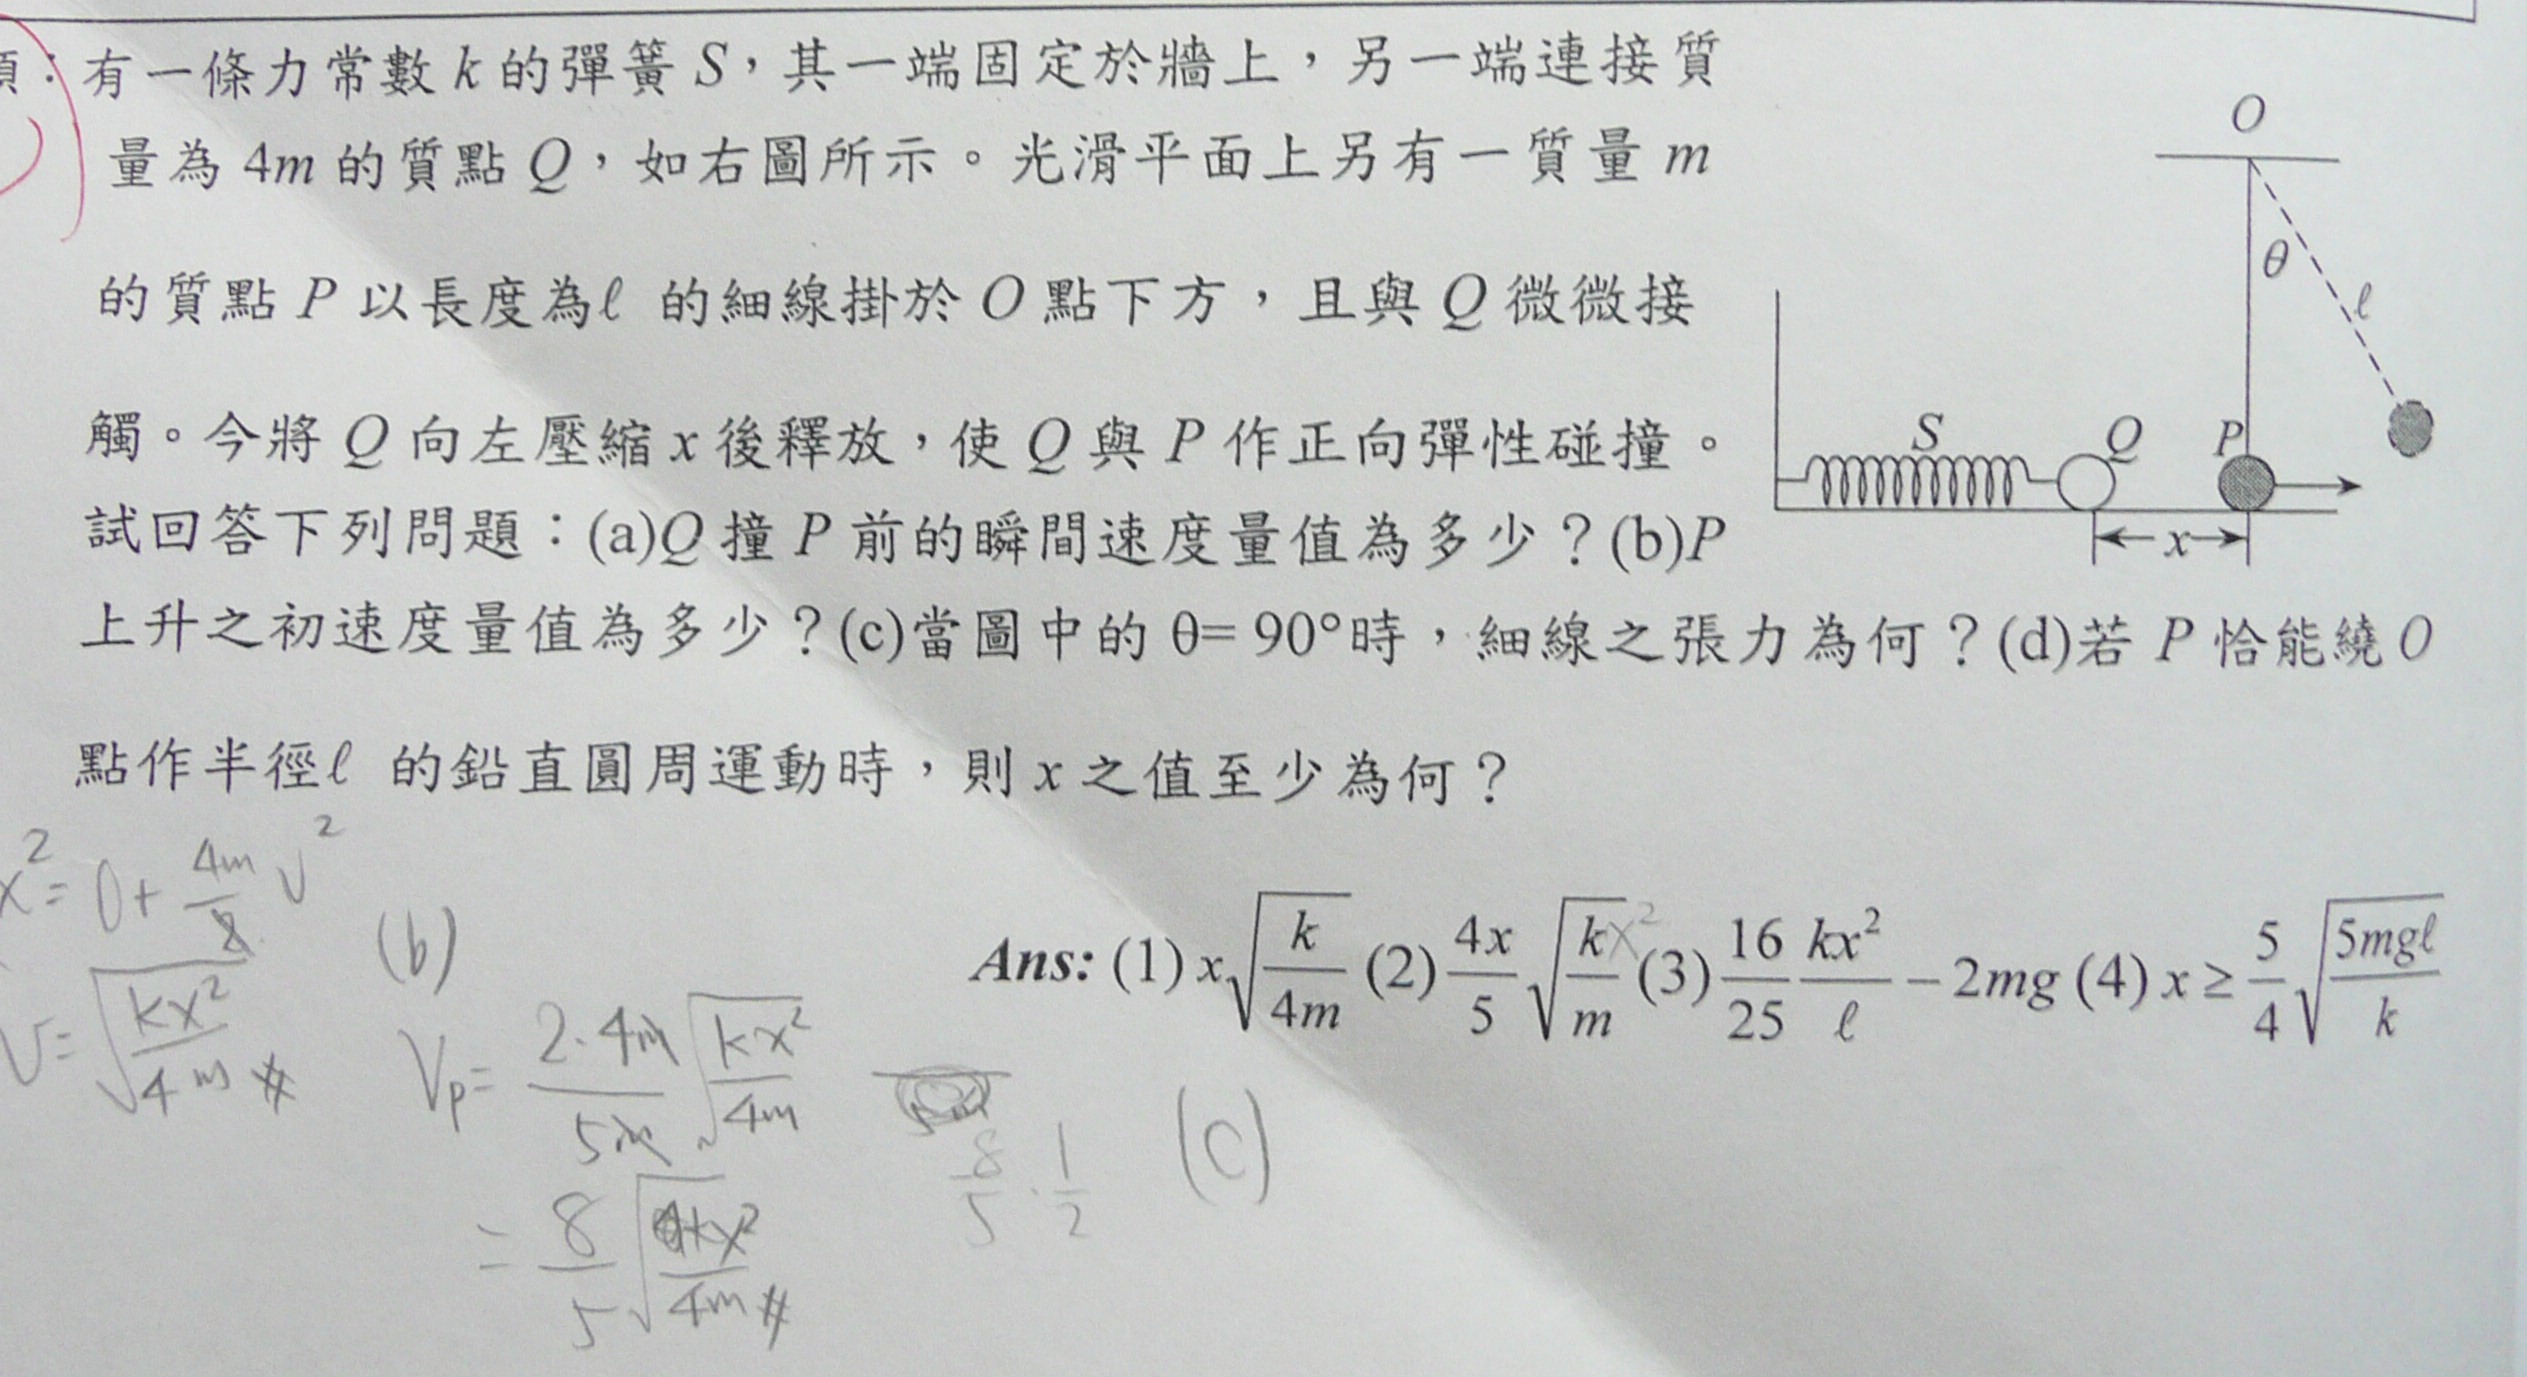 有一條力常數 k 的彈簧 S，其一端固定於牆上，另一端連接質
量為 4m 的質點 Q，如右圖所示。光滑平面上另有一質量 m
的質點 P 以長度為ℓ 的細線掛於 O 點下方，且與 Q 微微接
觸。今將 Q 向左壓縮 x 後釋放，使 Q 與 P 作正向彈性碰撞。
試回答下列問題：(a)Q 撞 P 前的瞬間速度量值為多少？(b)P
上升之初速度量值為多少？(c)當圖中的 θ= 90°時，細線之張力為何？(d)若 P 恰能繞 O
點作半徑ℓ 的鉛直圓周運動時，則 x 之值至少為何？
O
θ
ℓ
S
Q
P
x
Ans: (1) x√(k/4m) (2) 4x/5 √(k/m) (3) 16/25 kx²/ℓ − 2mg (4) x ≥ 5/4 √(5mgℓ/k)
x² = 0 + 4m/8 V²
V = √(kx²/4m) #
(b)
Vp = 2·4m/5m √(kx²/4m)
= 8/5 √(kx²/4m) #
8/5 · 1/2
(C)